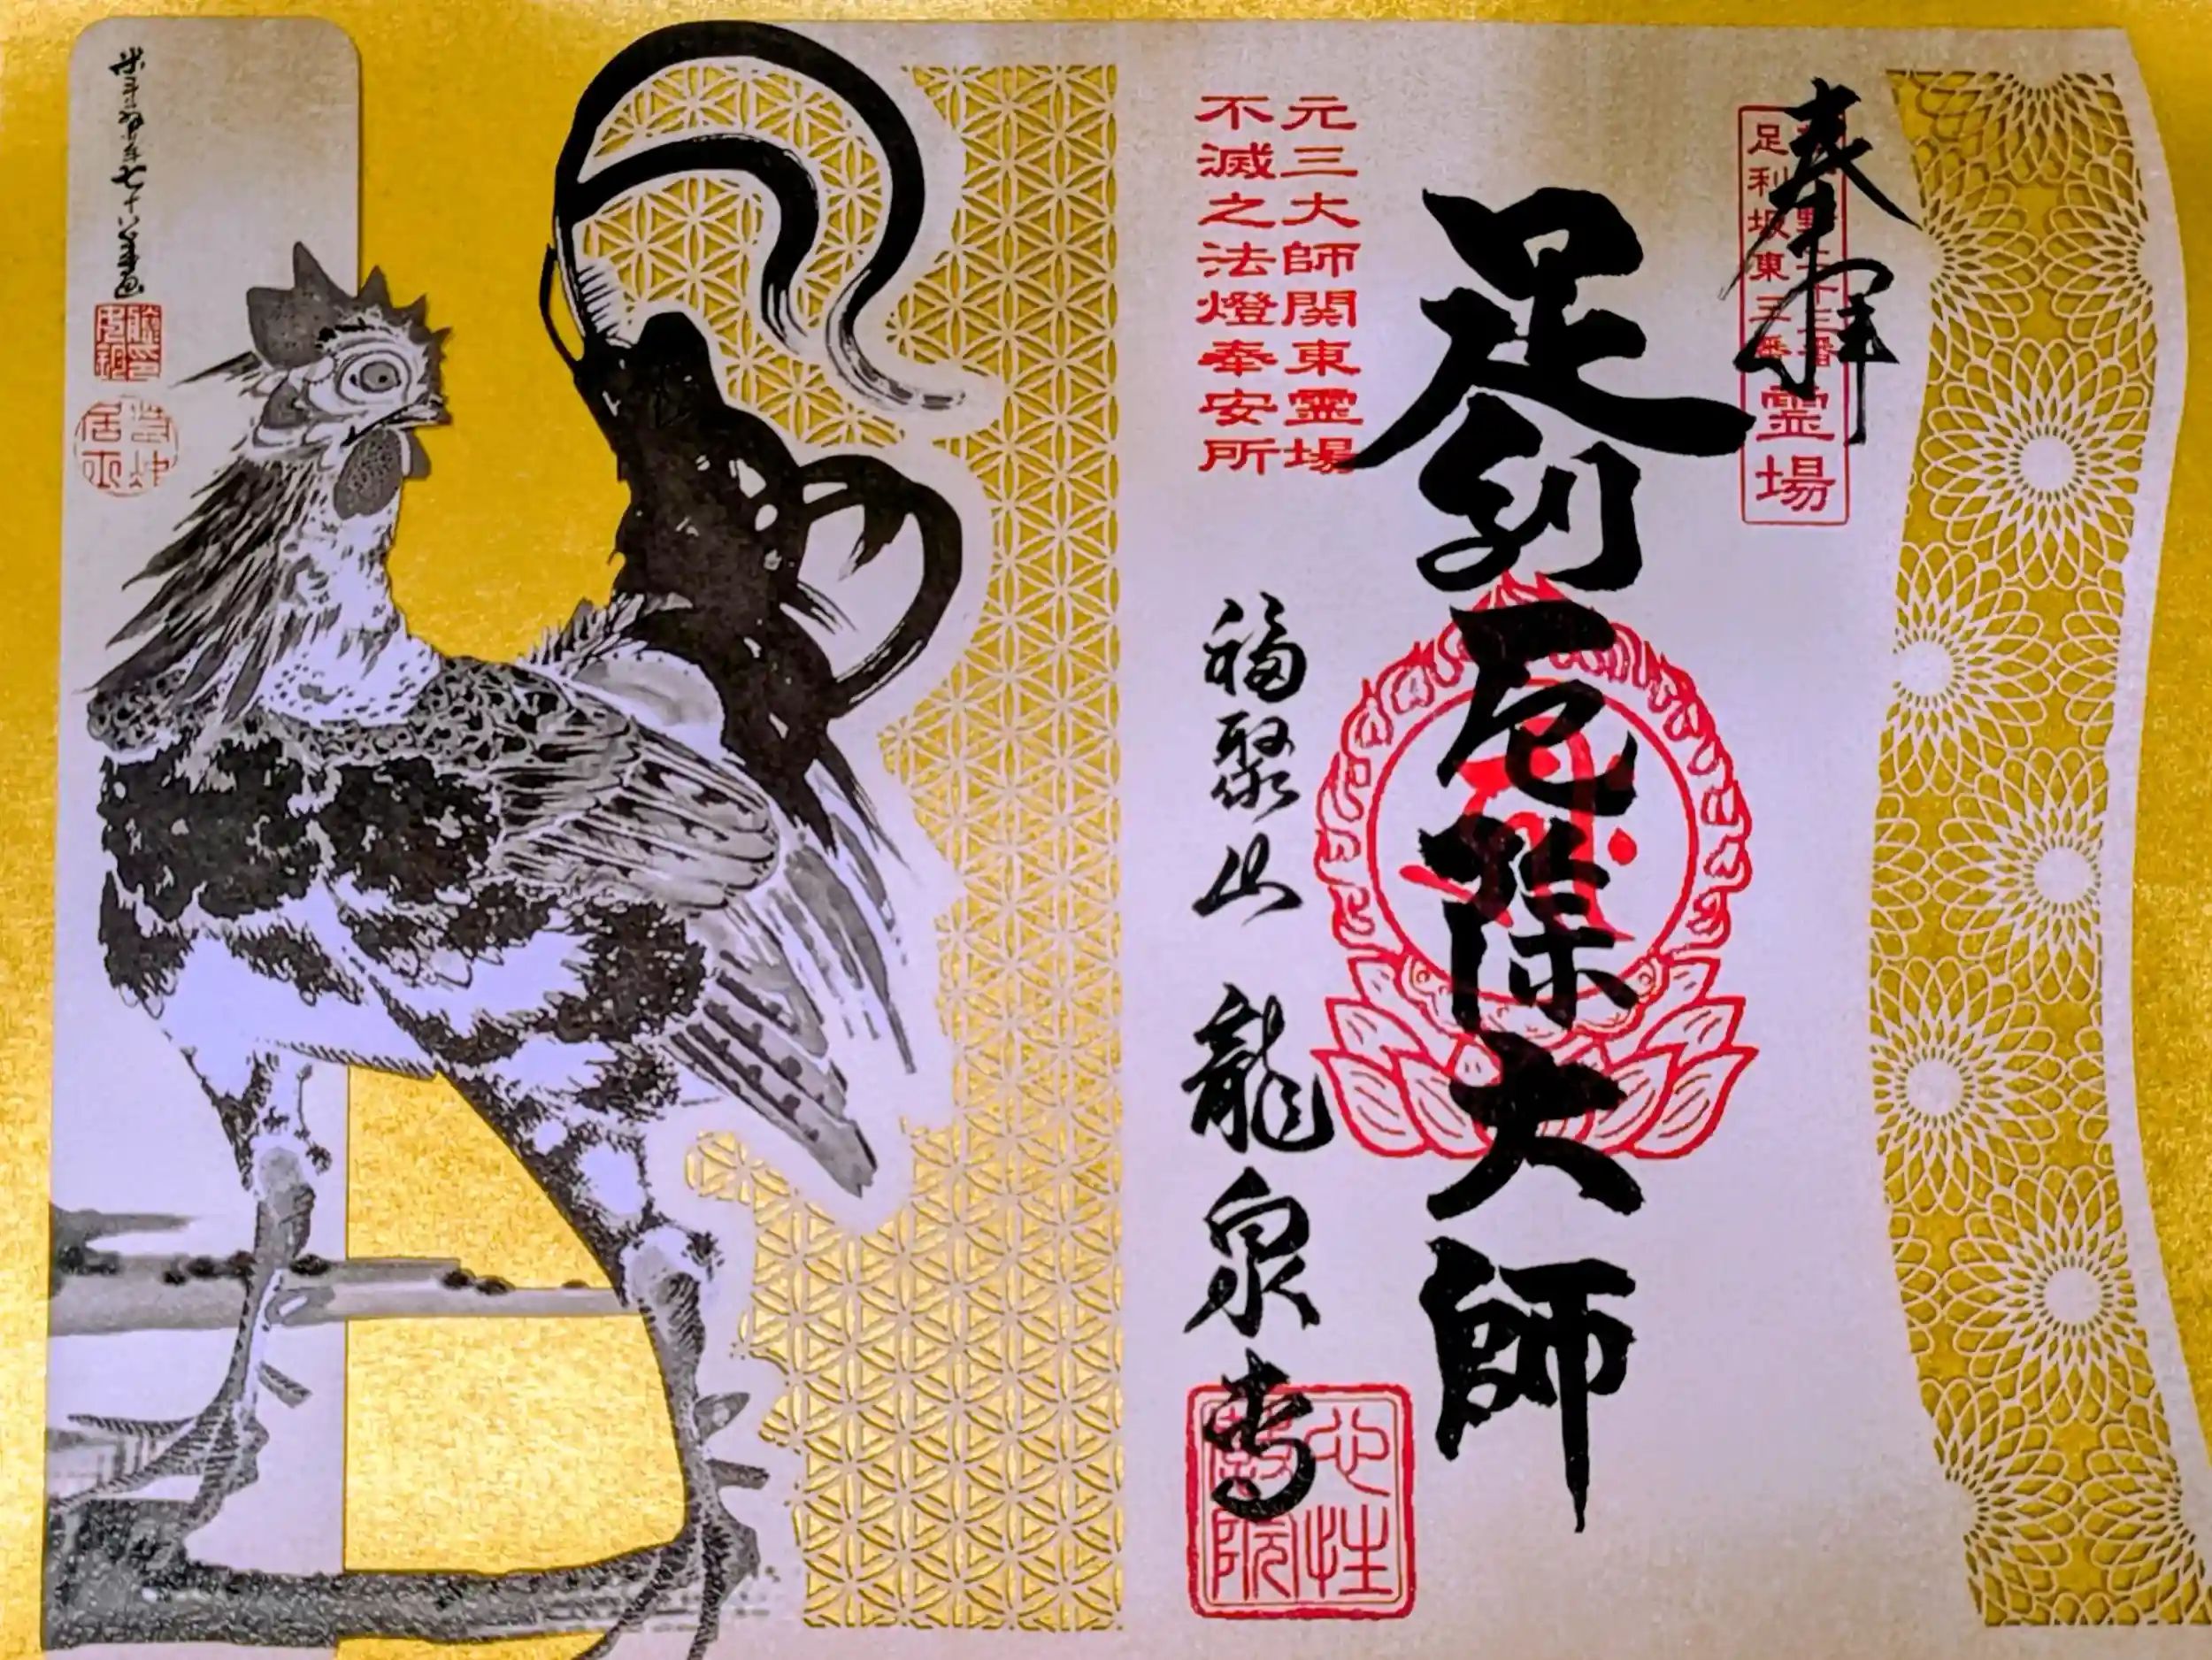 奉拝
足利坂東三番
霊場
足利厄除大師
元三大師関東霊場
不滅之法燈奉安所
福聚山 龍泉寺
米斗翁行年七十八歳画
若冲居士